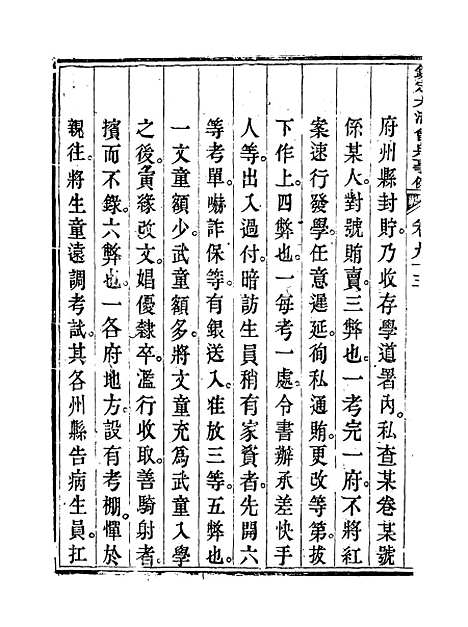 欽定大清會典事例 卷九十三
府州縣封貯。乃收存學道署內。私查某卷某號
係某人。對號賄賣。三弊也。一考完一府。不將紅
案速行發學。任意遲延。徇私通賄。更改等第。拔
下作上。四弊也。一每考一處。令書辦承差快手
人等。出入過付。暗訪生員稍有家資者。先開六
等考單。嚇詐保等。有銀送入。准放三等。五弊也。
一文童額少。武童額多。將文童充爲武童入學
之後。夤緣改文。娼優隸卒。濫行收取。善騎射者。
擯而不錄。六弊也。一各府地方。設有考棚。憚於
親往。將生童遠調考試。其各州縣告病生員。扛